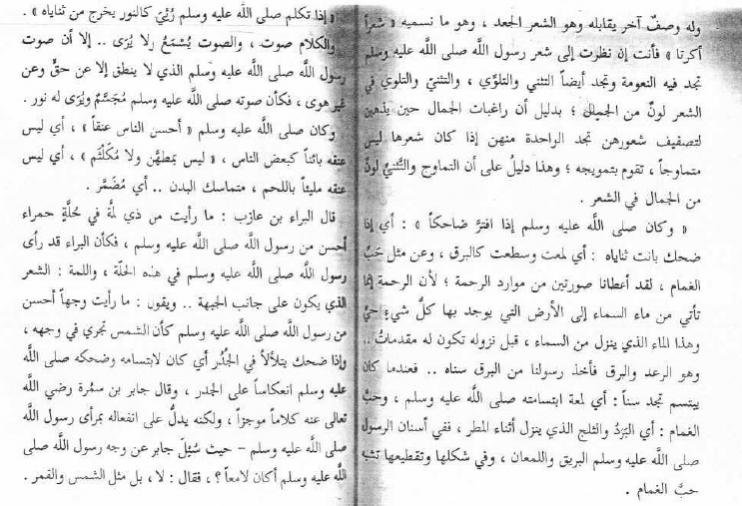 وله وصفٌ آخر يقابله وهو الشعر الجعد ، وهو ما نسميه « شعراً
أكرتا » فأنت إن نظرت إلى شعر رسول اللَّه صلى اللَّه عليه وسلم
تجد فيه النعومة وتجد أيضاً التثني والتلوِّي ، والتثنيّ والتلوي في
الشعر لونٌ من الجمال ؛ بدليل أن راغبات الجمال حين يذهبن
لتصفيف شعورهن تجد الواحدة منهن إذا كان شعرها ليس
متماوجاً ، تقوم بتمويجه ؛ وهذا دليلُ على أن التماوج والتَّثنيَّ لونٌ
من الجمال في الشعر .
« وكان صلى اللَّه عليه وسلم إذا افترَّ ضاحكاً » : أي إذا
ضحك بانت ثناياه : أي لمعت وسطعت كالبرق ، وعن مثل حَبِّ
الغمام ، لقد أعطانا صورتين من موارد الرحمة ؛ لأن الرحمة إنما
تأتي من ماء السماء إلى الأرض التي يوجد بها كلُّ شيءٍ حيٍّ
وهذا الماء الذي ينزل من السماء ، قبل نزوله تكون له مقدماتُ ..
وهو الرعد والبرق فأخذ رسولنا من البرق سناه .. فعندما كان
يبتسم تجد سناً : أي لمعة ابتسامته صلى اللَّه عليه وسلم ، وحبُّ
الغمام : أي البَرَدُ والثلج الذي ينزل أثناء المطر ، ففي أسنان الرسول
صلى اللَّه عليه وسلم البريق واللمعان ، وفي شكلها وتقطيعها تشبه
حبَّ الغمام .
« إذا تكلم صلى اللَّه عليه وسلم رُئِيَ كالنور يخرج من ثناياه » .
والكلام صوت ، والصوت يُسْمَعُ ولا يُرَى .. إلا أن صوت
رسول اللَّه صلى اللَّه عليه وسلم الذي لا ينطق إلا عن حقٍّ وعن
غير هوى ، فكأن صوته صلى اللَّه عليه وسلم مُجَسَّمٌ ويُرَى له نور .
وكان صلى اللَّه عليه وسلم « أحسن الناس عنقاً » ، أي ليس
عنقه بائناً كبعض الناس ، « ليس بمطهَّن ولا مُكَلْثَم » ، أي ليس
عنقه مليئاً باللحم ، متماسك البدن .. أي مُضَمَّر .
قال البراء بن عازب : ما رأيت من ذي لمَّة في حُلَّةٍ حمراء
أحسن من رسول اللَّه صلى اللَّه عليه وسلم ، فكأن البراء قد رأى
رسول اللَّه صلى اللَّه عليه وسلم في هذه الحلَّة ، واللمة : الشعر
الذي يكون على جانب الجبهة .. ويقول : ما رأيت وجهاً أحسن
من رسول اللَّه صلى اللَّه عليه وسلم كأن الشمس تجري في وجهه ،
وإذا ضحك يتلألأ في الجُدُر أي كان لابتسامه وضحكه صلى اللَّه
عليه وسلم انعكاساً على الجدر ، وقال جابر بن سمُرة رضي اللَّه
تعالى عنه كلاماً موجزاً ، ولكنه يدلُّ على انفعاله بمرأى رسول اللَّه
صلى اللَّه عليه وسلم - حيث سُئِلَ جابر عن وجه رسول اللَّه صلى
اللَّه عليه وسلم أكان لامعاً ؟ ، فقال : لا ، بل مثل الشمس والقمر .